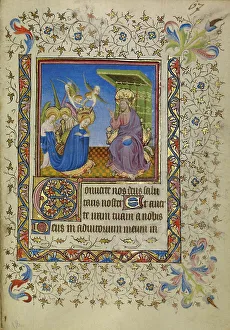 67
Conuerte nos deus salu
taris noster Et auer
te iram tuam a nobis
Deus in adiutorium meum in